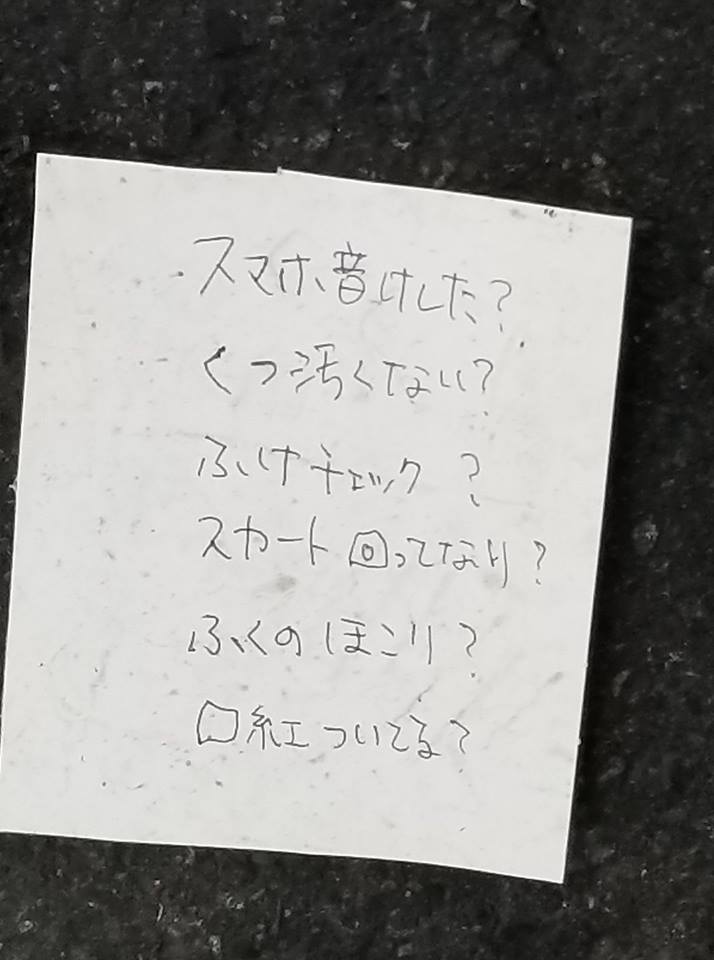 スマホ音けした?
くつ汚くない?
ふけチェック?
スカート回ってない?
ふくのほこり?
口紅ついてる?